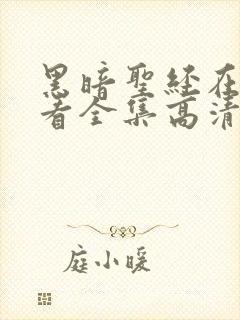 黑暗聖经在
看全集高清
庭小暖